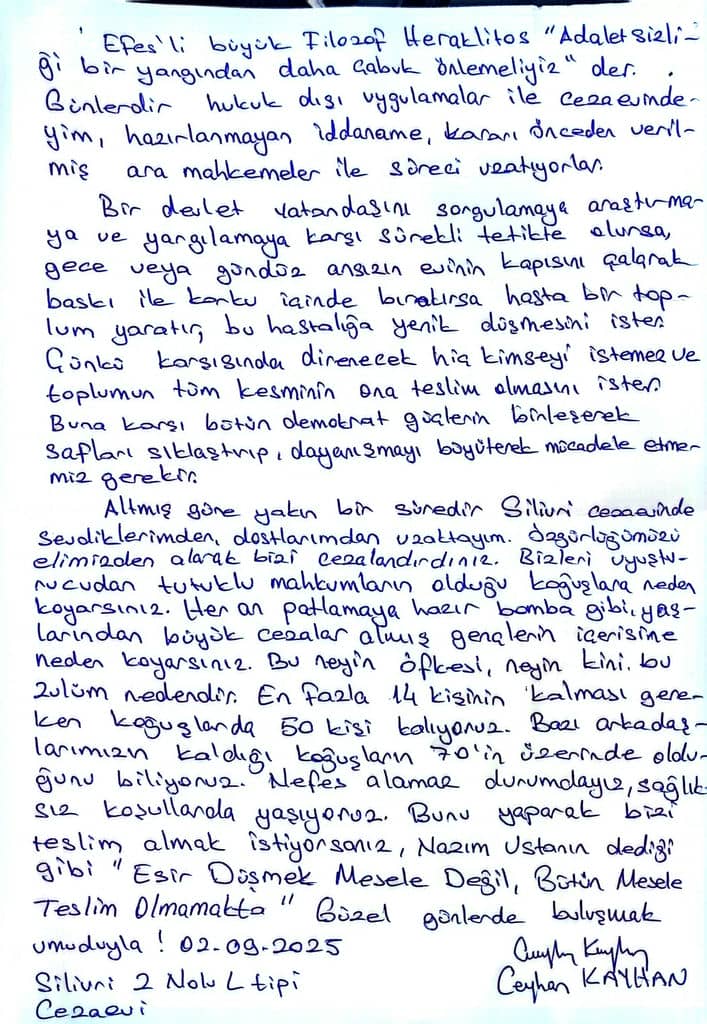 Efes'li büyük Filozof Heraklitos "Adaletsizli-
ği bir yangından daha çabuk önlemeliyiz" der.
Günlerdir hukuk dışı uygulamalar ile cezaevinde-
yim, hazırlanmayan iddaname, kararı önceden veril-
miş ara mahkemeler ile süreci uzatıyorlar.
Bir devlet vatandaşını sorgulamaya araştırma-
ya ve yargılamaya karşı sürekli tetikte olursa,
gece veya gündüz ansızın evinin kapısını çalarak
baskı ile korku içinde bırakırsa hasta bir top-
lum yaratır, bu hastalığa yenik düşmesini ister.
Çünkü karşısında direnecek hiç kimseyi istemez ve
toplumun tüm kesminin ona teslim olmasını ister.
Buna karşı bütün demokrat güçlerin birleşerek
safları sıklaştırıp, dayanışmayı büyüterek mücadele etme-
miz gerekir.
Altmış güne yakın bir süredir Silivri cezaevinde
sevdiklerimden, dostlarımdan uzaktayım. Özgürlüğümüzü
elimizden alarak bizi cezalandırdınız. Bizleri uyuştu-
rucudan tutuklu mahkumların olduğu koğuşlara neden
koyarsınız. Her an patlamaya hazır bomba gibi, yaş-
larından büyük cezalar almış gençlerin içerisine
neden koyarsınız. Bu neyin öfkesi, neyin kini, bu
zulüm nedendir. En fazla 14 kişinin kalması gere-
ken koğuşlarda 50 kişi kalıyoruz. Bazı arkadaş-
larımızın kaldığı koğuşların 70'in üzerinde oldu-
ğunu biliyoruz. Nefes alamaz durumdayız, sağlık-
sız koşullarda yaşıyoruz. Bunu yaparak bizi
teslim almak istiyorsanız, Nazım Ustanın dediği
gibi " Esir Düşmek Mesele Değil, Bütün Mesele
Teslim Olmamakta" Güzel günlerde buluşmak
umuduyla ! 02-09-2025
Silivri 2 Nolu L tipi
Cezaevi
Ceyhan KAYHAN